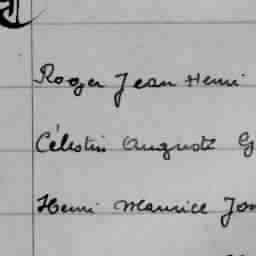 Roger Jean Henri
Célestin Auguste G
Henri Maurice Jo